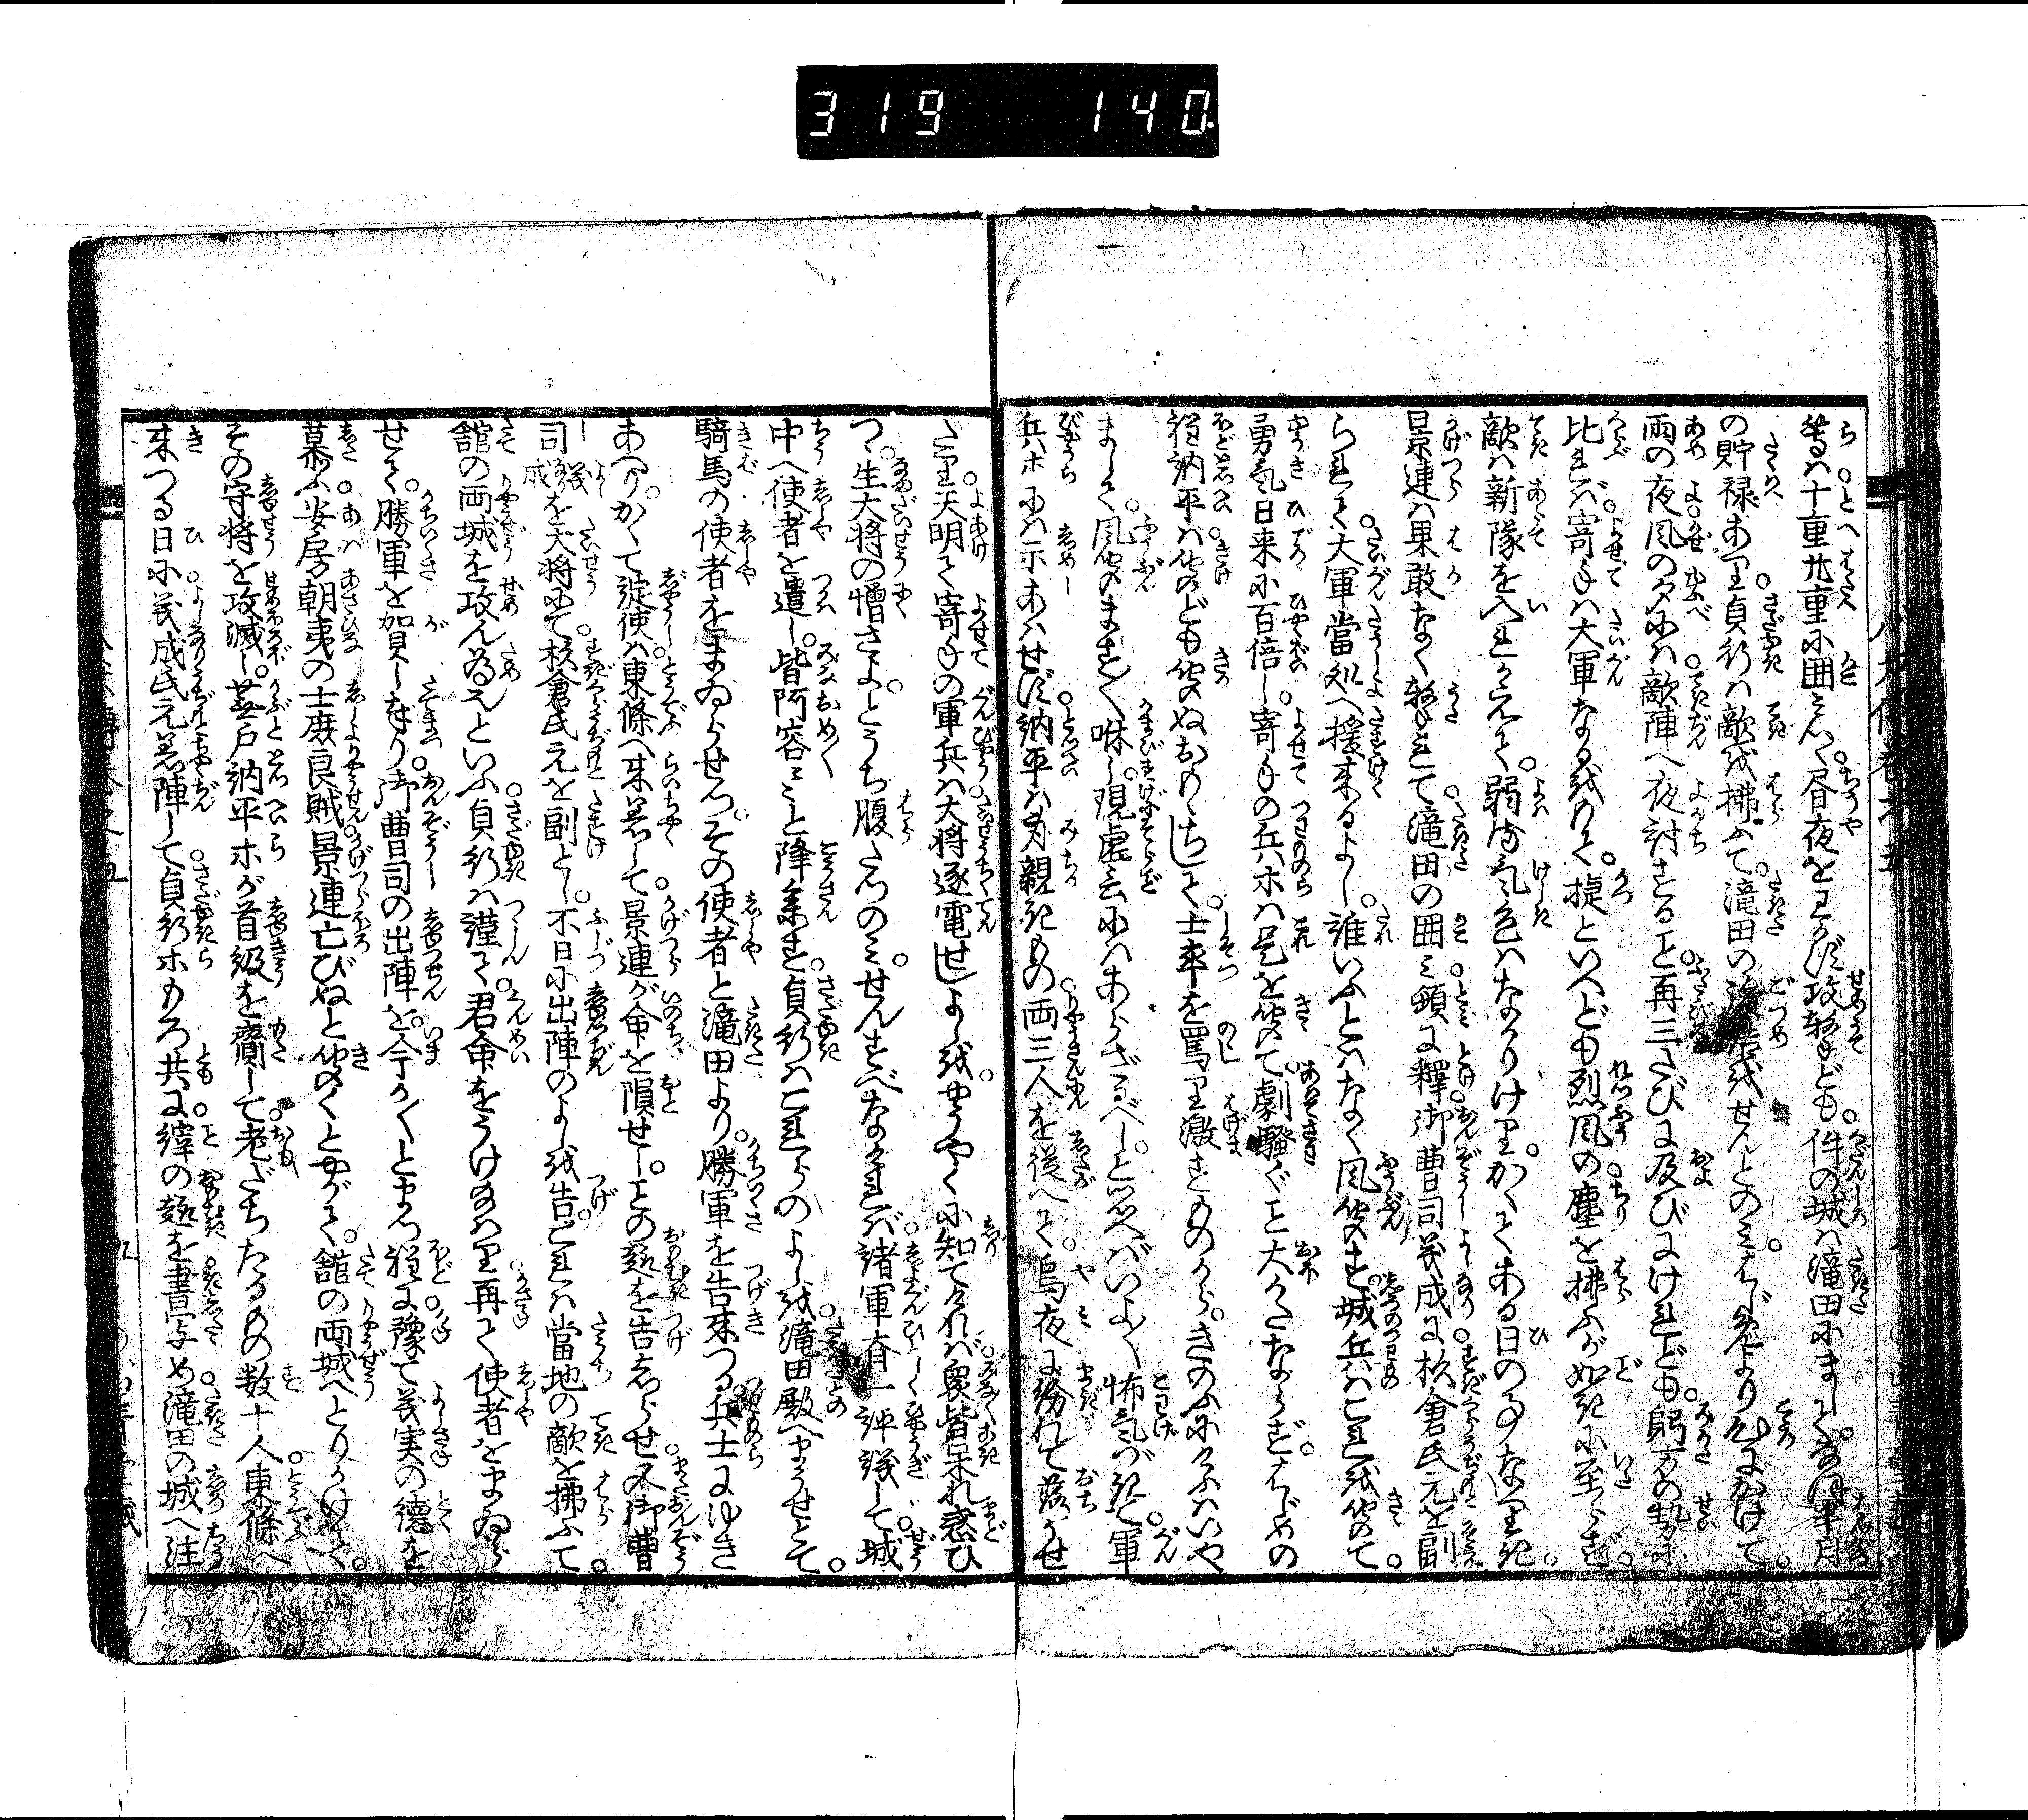 319 140.
等は十重廿重に囲みつ。昼夜をわかず攻撃ども。件の城は滝田にまして。なほ半月
の貯禄あり。貞行は敵を拂ふて。滝田の
雨の夜風の夕には敵陣へ夜討すること。再三たびに及びにけれども。躬方の勢に
比れば。寄手は大軍なるをもて。捷といへども烈風の塵を拂ふが如きに至らず。
敵は新隊を入れかえて。弱る気色はなかりけり。かくてある日の事なりき。
景連は果敢なく撃れて。滝田の囲み頓に釋。御曹司義成に杉倉氏元を副
られて。大軍當処へ援来るよし。誰いふとはなく風聞す。城兵はこれを聞て。
勇気日来に百倍し。寄手の兵ホは是を聞て。劇騒ぐこと大かたならず。はじめの
程納平は聞けども聞ぬおももちして。士卒を罵り激すものから。きのふにけふはいや
まして。風聞のます〱咻し。現虚言にはあらざるべし。と思へばいよ〱怖気つきて。軍
兵ホには示あはせず。納平は身親きもの。両三人を従へて。烏夜に紛れて落うせ
たり。天明て寄手の軍兵は大将逐電せしよしを。やうやくに知てければ。衆皆呆れ惑ひ
つ。生大将の憎さよ。とうち腹たつのみ。せんすべなければ。諸軍斉一評議して。城
中へ使者を遣し。皆阿容〻〻と降参す。貞行はこれらのよしを。滝田殿へまうせとて。
騎馬の使者をまゐらせつ。その使者と滝田より。勝軍を告来つる兵士にゆき
あへり。かくて淀使は。東條へ来着して。景連が命を隕せし。ことの趣を告しらせ。又御曹
司義成を大将にて。杉倉氏元を副とし。不日に出陣のよしを告。これは當地の敵を拂ふて。
舘の両城を攻ん為也といふ。貞行は謹て。君命をうけ給はり。再て使者をまゐら
せて。勝軍を賀しまつり。御曹司の出陣を。今か〱とまつ程に。豫て義実の徳を
慕ふ。安房朝夷の士庶良賊。景連亡びぬと聞くとやがて。舘の両城へとりかけて。
その守将を攻滅し。蕪戸納平ホが首級を齎して。老だちたるもの数十人。東條へ
来つる日に。義成氏元着陣して。貞行ホもろ共に。縡の趣を書写め。滝田の城へ注